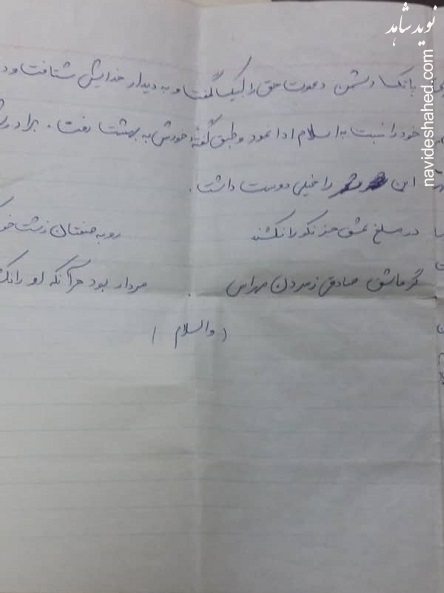 نوید شاهد
navideshahed.com
با تک دشمن دعوت حق را لبیک گفت و به دیدار خدایش شتافت و د
خود را نسبت به اسلام ادا نمود و طبق گفته خودش به بهشت رفت. برادر
این شعر را خیلی دوست داشت.
در مسلخ عشق جز نکو را نکشند روبه صفتان زشت خو
گر عاشق صادقی ز مردن مهراس مردار بود هر آنکه او را نک
(والسلام)